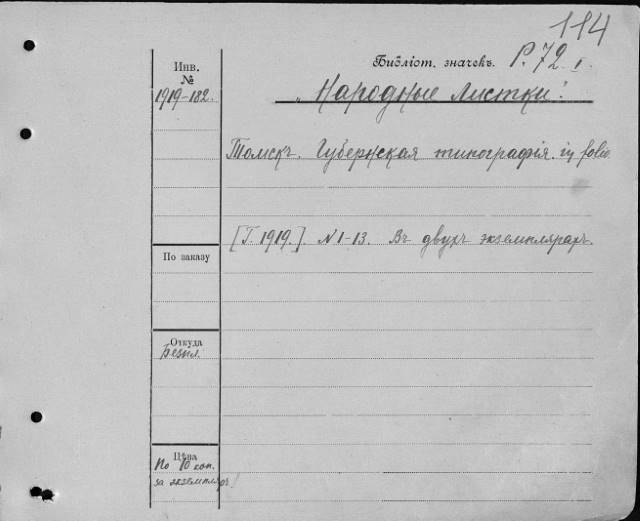 114
Инв.
№
1919-182.
Библіот. значекъ. Р.72
"Народные листки".
Томскъ. Губернская типографія. in folio
[Г. 1919.]. N 1-13. Въ двухъ экземплярахъ.
По заказу
Откуда
Безпл.
Цѣна
По 10 коп.
за экземпляръ!